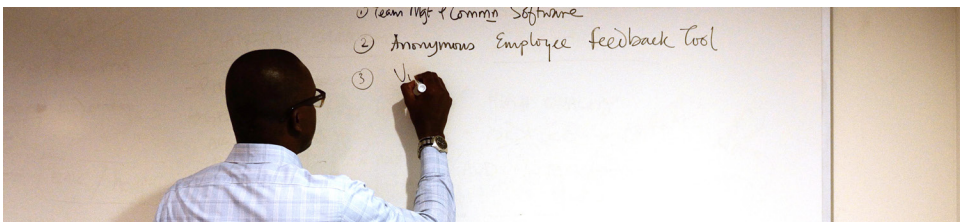 ① Team Mgt & Commn Software
② Anonymous Employee Feedback Tool
③ Vi